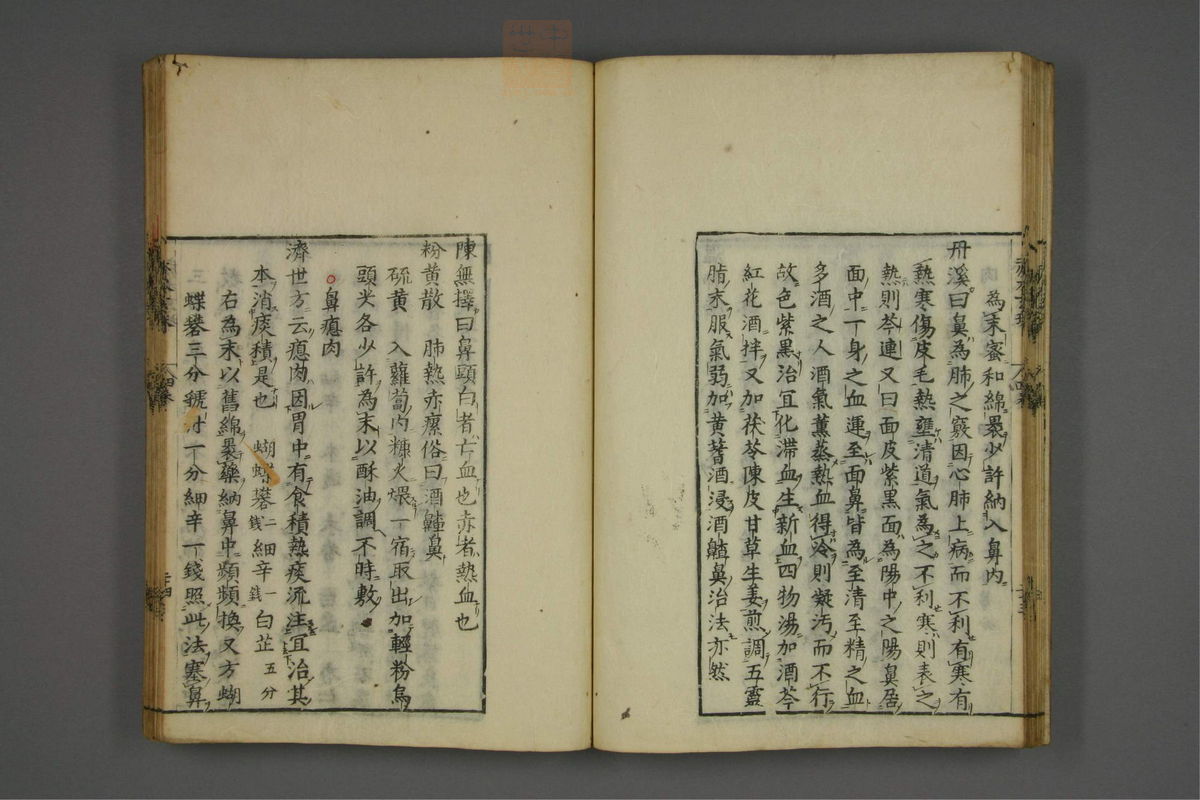 為末蜜和綿裹少許納入鼻內
丹溪曰鼻為肺之竅因心肺上病而不利有寒有
熱寒傷皮毛熱壅清道氣為之不利寒則表之
熱則芩連又曰面皮紫黑面為陽中之陽鼻居
面中一身之血運至面鼻皆為至清至精之血
多酒之人酒氣薰蒸熱血得冷則凝汚而不行
故色紫黑治宜化滯血生新血四物湯加酒芩
紅花酒拌又加茯苓陳皮甘草生姜煎調五靈
脂末服氣弱加黄蓍酒浸酒齄鼻治法亦然
陳無擇曰鼻頭白者亡血也赤者熱血也
粉黄散 肺熱赤瘰俗曰酒齄鼻
硫黄 入蘿蔔內糠火煨一宿取出加輕粉烏
頭尖各少許為末以酥油調不時敷
鼻瘜肉
濟世方云瘜肉因胃中有食積熱痰流注宜治其
本消痰積是也 蝴蝶礬二錢細辛一錢白芷五分
右為末以舊綿裹藥納鼻中頻頻換又方蝴
蝶礬三分 一分細辛一錢照此法塞鼻